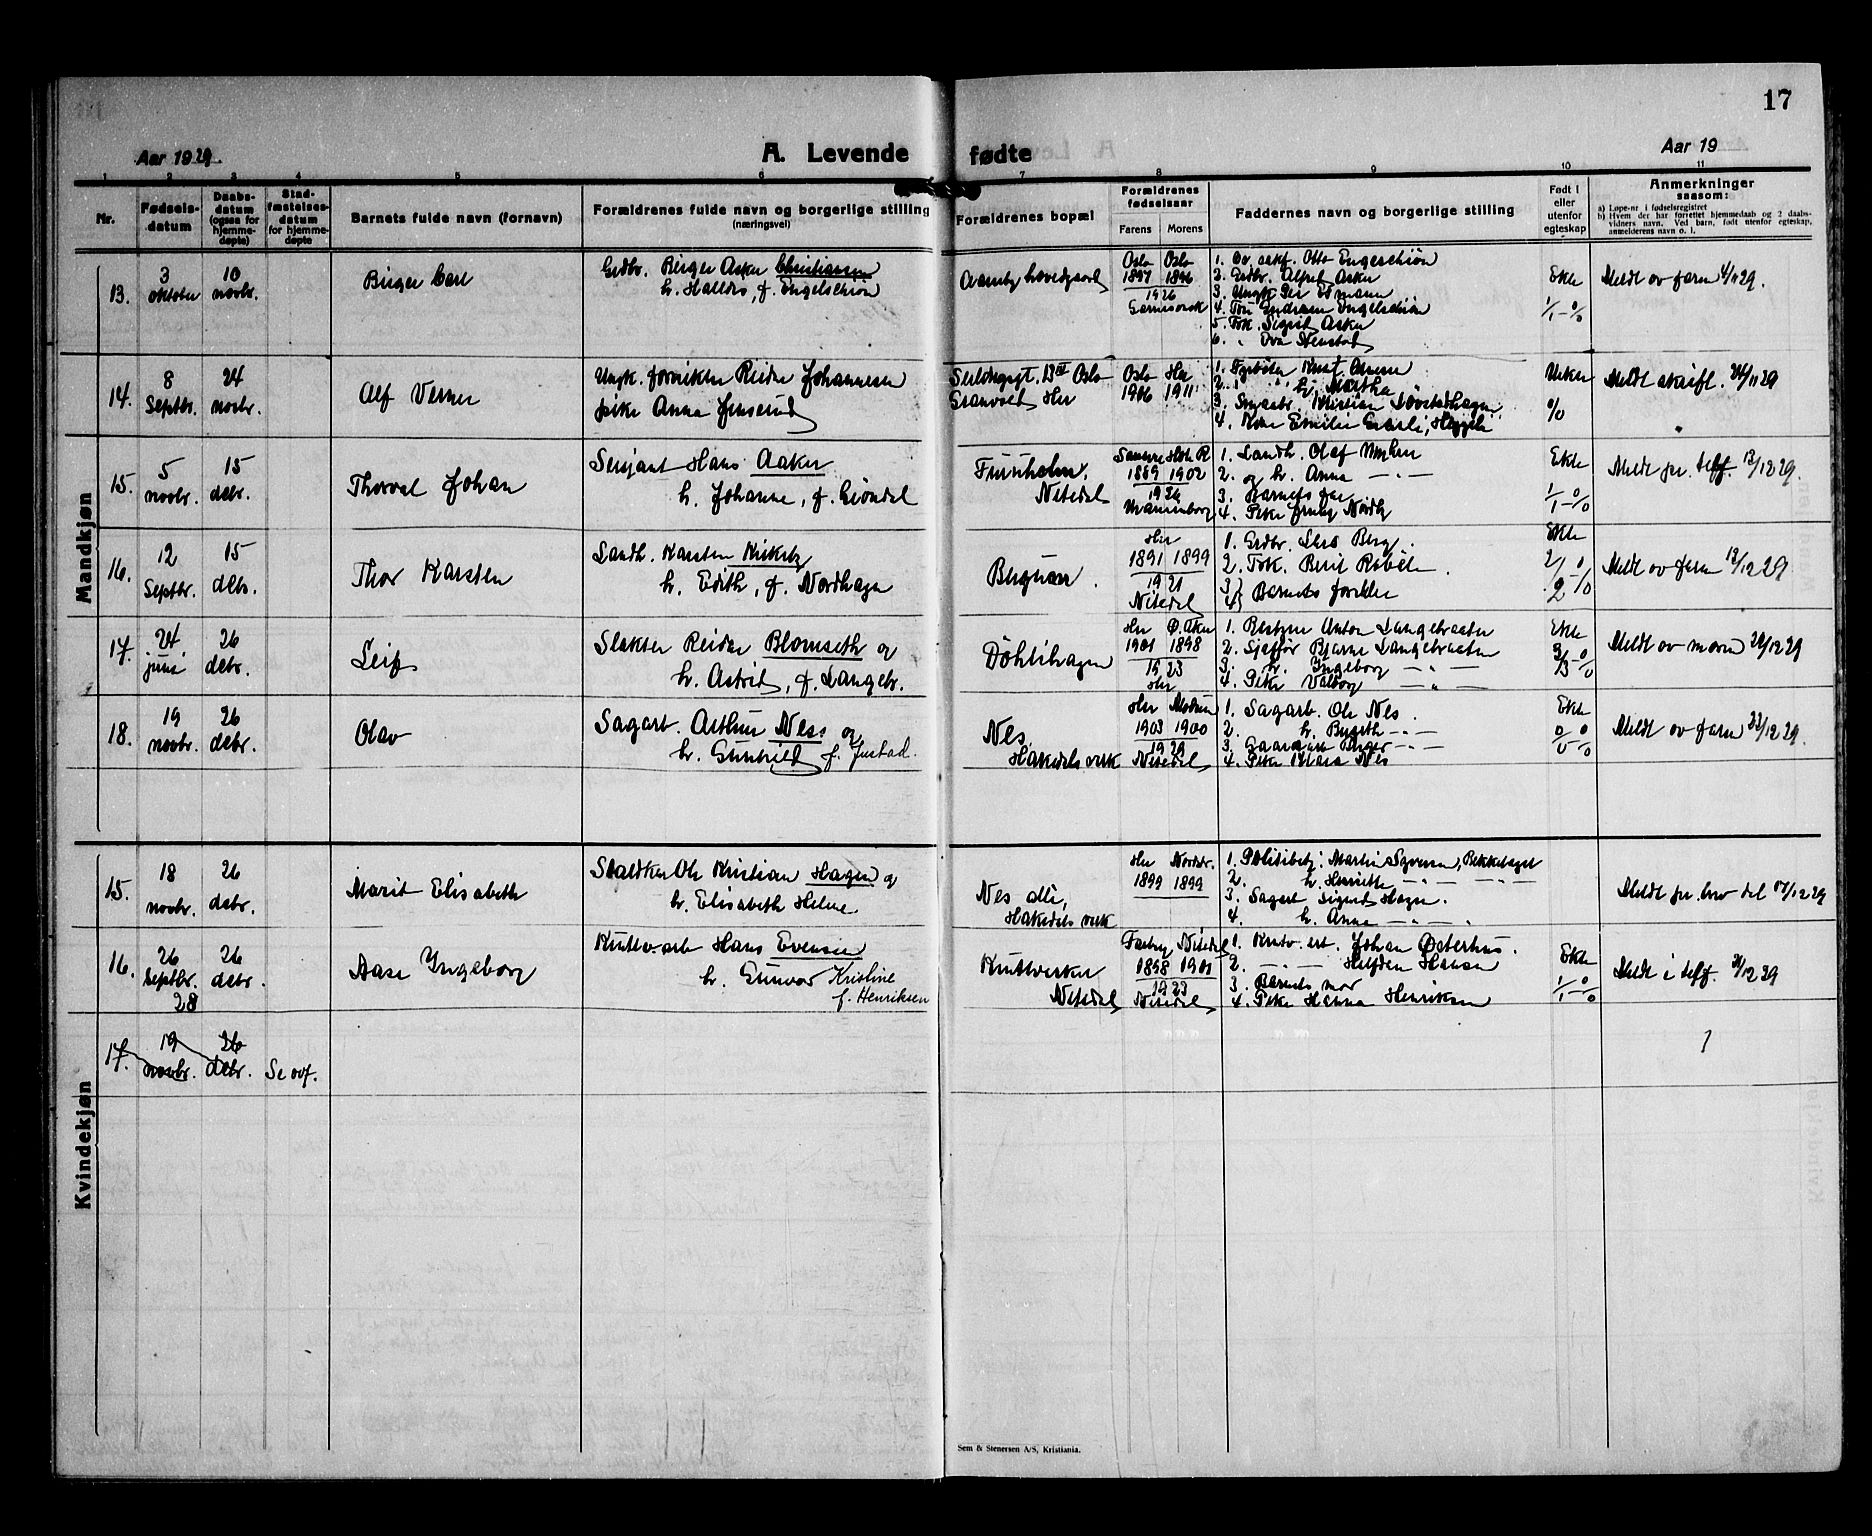 17
Aar 1929
A. Levende
fødte
Aar 19
1 2 3 4 5 6 7 8 9 10 11
Nr.
Fødsels-
datum
Daabs-
datum
(ogsaa for
hjemme-
døpte)
Stad-
fæstelses-
datum
for hjemme-
døpte
Barnets fulde navn (fornavn)
Forældrenes fulde navn og borgerlige stilling
(næringsvei)
Forældrenes bopæl
Forældrenes
fødselsaar
Farens Morens
Faddernes navn og borgerlige stilling
Født i
eller
utenfor
egteskap
Anmerkninger
saasom:
a) Løpe-nr i fødselsregistret
b) Hvem der har forrettet hjemmedaab og 2 daabs-
vidners navn. Ved barn, født utenfor egteskap,
anmelderens navn o. l.
Mandkjøn
13.
3
oktober
10
novbr.
Birger Carl
Grdbr. Birger Asker Christiansen
h. Halldis, f. Engelschiøn
hovedgaard
Oslo Oslo
1897 1896
1926
1.
Otto Engeschiøn
2. Grdbr. Alfred Asker
3. Ungk.
4. Engelschiøn
5. Frk. Sigrid Asker
6.
Ekte
Meldt av faren 4/11 29.
14.
8
Septbr.
24
novbr.
Alf Verner
Ungk. Reidar Johannesen
pike Anna
Oslo
Granvold, Her
Oslo Her
1906 1911
1. Arnesen
2. h. Martha
3. Kristian
4. Emilie
Meldt skriftl. 24/11 29
15.
5
novbr.
15
debr.
Thorval Johan
Sersjant Hans Aaker
h. Johanne, f. Grøndal
Furuholm,
Nitedal
1889 1902
1924
1. Landh. Olaf
2. og h. Anna
3. Barnets far
4. Pike Nordby
Ekte
Meldt pr. telf. 13/12 29.
16.
12
Septbr.
15
debr.
Thor Karsten
Landh. Karsten Kirkeby
h. Edith, f. Nordhagen
Her
1891 1899
1921
Nitedal
1. Grdbr. Lars Berg.
2. Frk. Berit
3} Barnets foreldre
4}
Ekte
Meldt av faren 13/12 29
17.
24
juni
26
debr.
Leif
Slakter Reidar Blomseth og
h. Astrid, f. Langebr.
Døhlihagen
Her Ø. Aker
1901 1898
1923
Her
1. Anton Langebraaten
2. Sjåffør Bjarne Langebraaten
3. h. Ingeborg
4. Pike Valborg
Ekte
Meldt av moren 20/12 29
18.
19
novbr.
26
debr.
Olav
Sagarb. Arthur Ness og
h. Gunhild f. Justad.
Nes
Hakedals verk
Her Modum
1903 1900
1929
Nitedal
1. Sagarb. Ole Nes.
2. h. Birgith
3. Birger
4. Pike Klara Nes
Ekte
Meldt av faren 23/12 29.
Kvindekjøn
15.
18
novbr.
26
debr.
Marit Elisabeth
Ole Kristian Hagen og
h. Elisabeth Helene
Nes alle,
Hakedals verk
Her Nordstr.
1899 1899
1. Politibetj. Martin Syversen, Bekkelaget
2. h. Henriette
3. Sagarb. Sigurd Hagen.
4. h. Anna
Meldt pr. brev 17/12 29
16.
26
Septbr.
28
26
debr.
Aase Ingeborg
Krutv.arb Hans Evensen
h. Gunvor Kristine
f. Henriksen
Krutverket
Nitedal
Nitedal
1898 1901
1923
Nitedal
1. Krutv. arb. Johan Østerhus.
2. Halfdan Hansen
3. Barnets mor
4. Pike Hanna Henriksen
Ekte
Meldt i telf. 21/12 29
17.
19
novbr.
26
debr.
Se ovf.
Sem & Stenersen A/S, Kristiania.